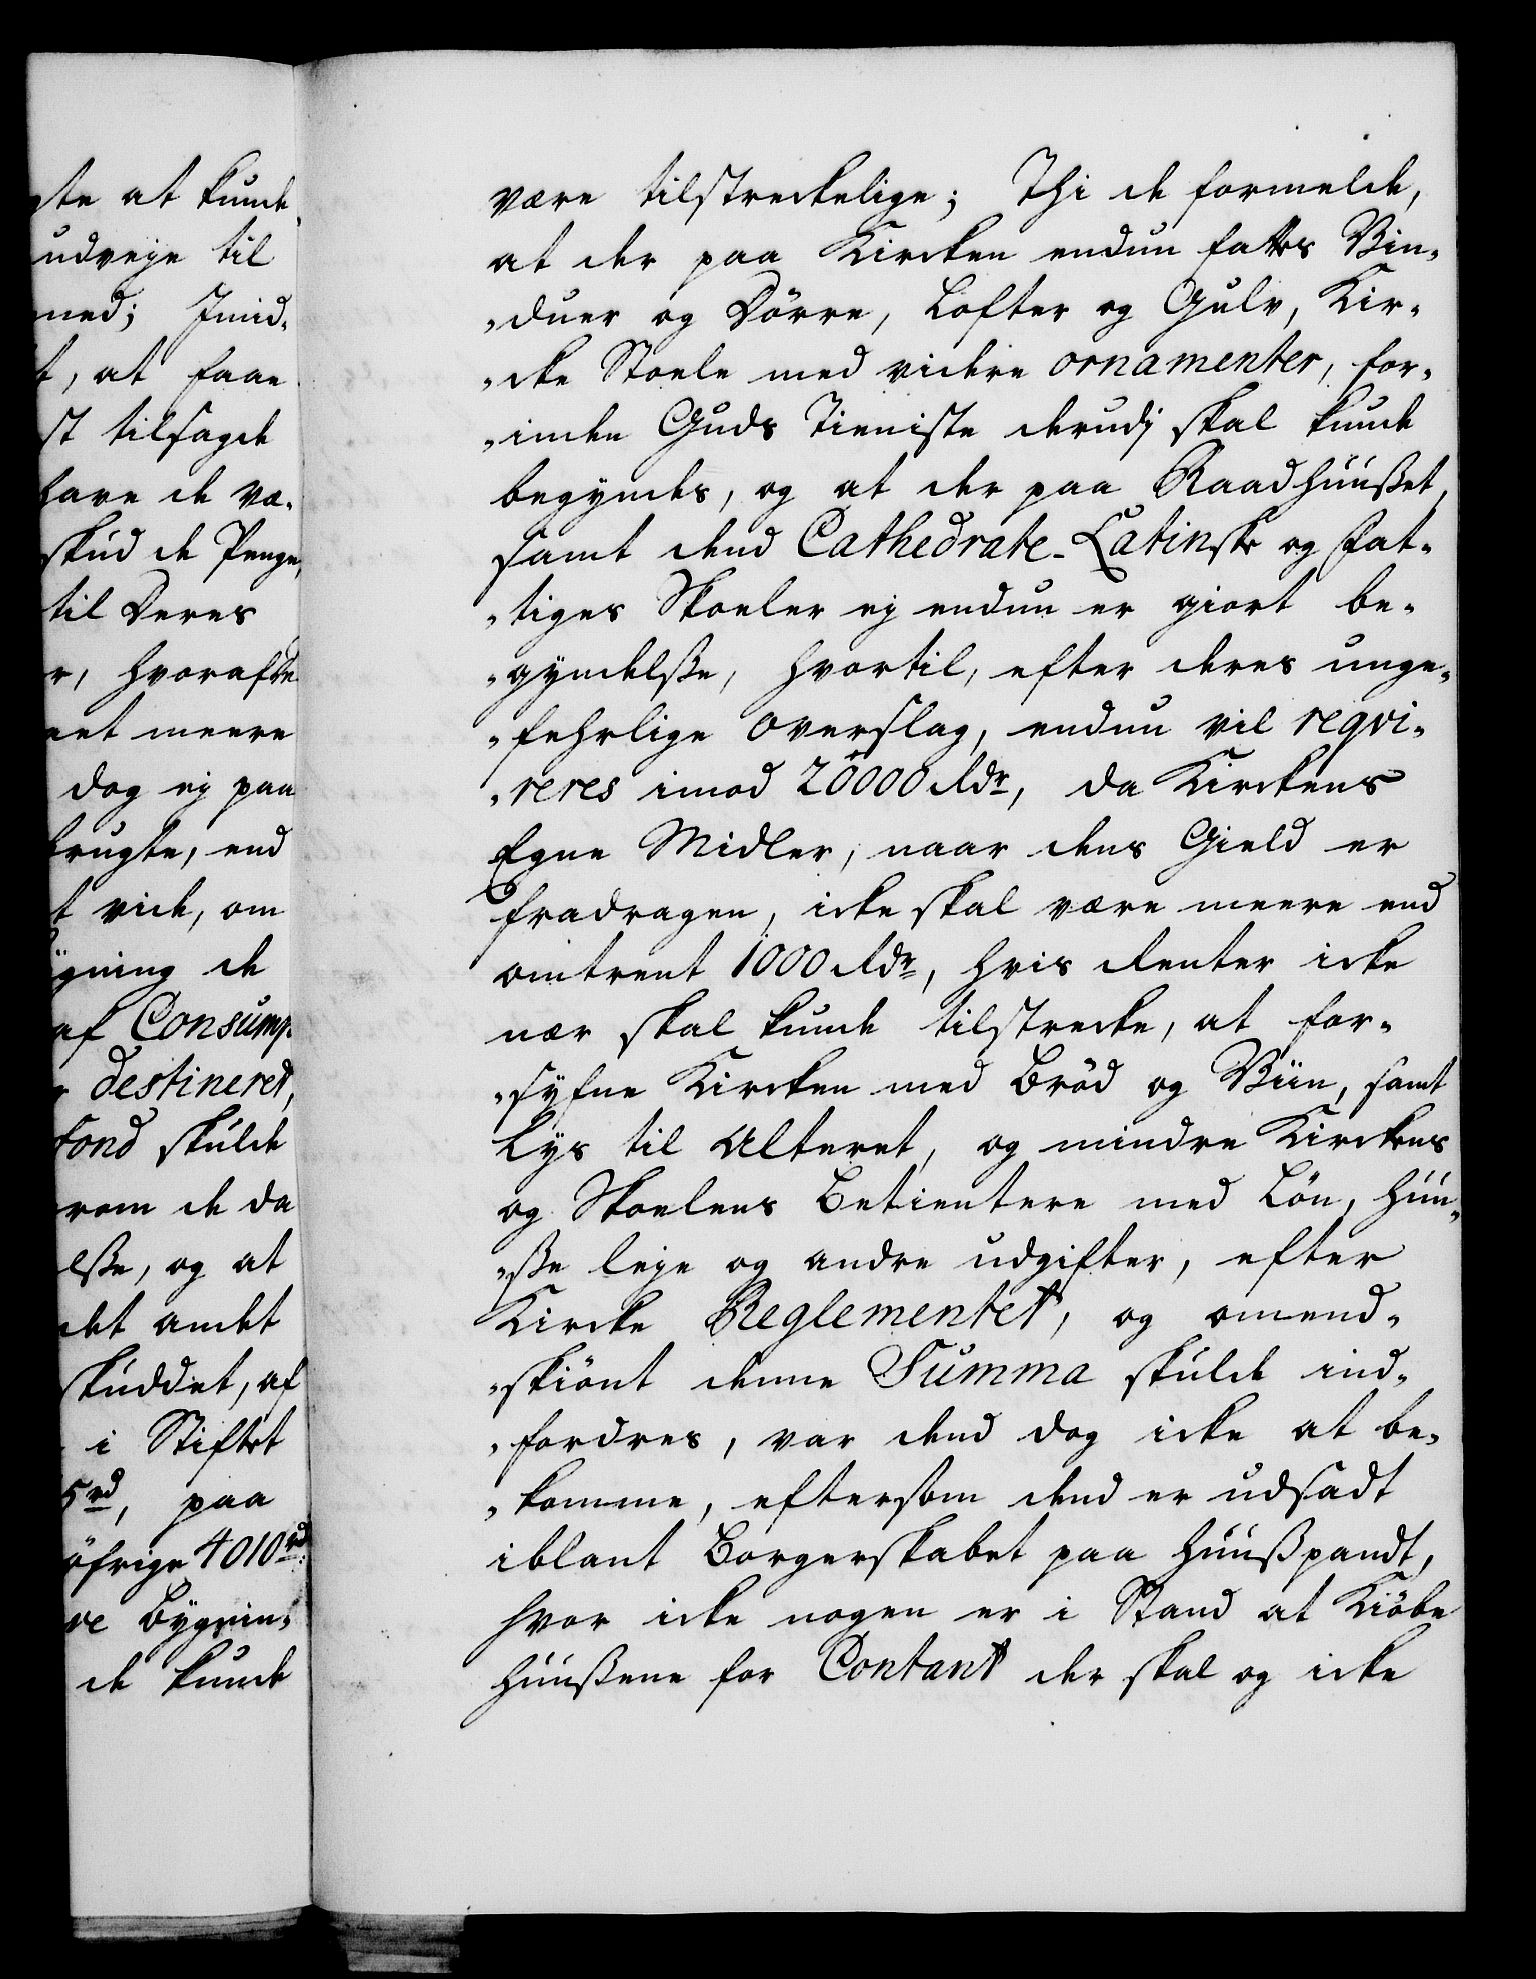 gte at kunde
udveje til
med; Imid-
t, at faae
st tilsagde
have de væ-
skud de Penge,
til Deres
r, hvorefter
net meere
dog ej paa
brugte, end
t vide, om
ÿgning de
af Consump-
destineret,
Fond skulde
rom de da
else, og at
det andet
skuddet, af
i Stiftet
5 rd, paa
öfrige 4010 rd:
ve Bÿgnin-
de kunde
være tilstreckelige; Thi de formelde,
at der paa Kircken endnu fattes Vin-
-duer og Dörre, Lofter og Gulv, Kir-
-cke Stoele med videre ornamenter, for-
-inden Guds Tieniste derudj skal kunde
begyndes, og at der paa Raadhuußet,
samt dend Cathedrale-Latinske og Fat-
-tiges Skoeler ej endnu er giort be-
-gyndelße, hvortil, efter deres unge-
-fehrlige overslag, endnu vil reqvi-
-reres imod 20000 Rdr, da Kirckens
Egne Midler, naar dens Gield er
fradragen, icke skal være meere end
omtrent 1000 Rdr, hvis Renter icke
nær skal kunde tilstrecke, at for-
-syfne Kircken med Bröd og Viin, samt
Lys til Alteret, og mindre Kirckens
og Skoelens Betientere med Lön, Huu-
-ße leje og andre udgifter, efter
Kircke Reglementet, og omend-
-skiönt denne Summa skulde ind-
-fordres, var dend dog icke at be-
-komme, eftersom dend er udsadt
iblant Borgerskabet paa Huußpandt,
hvor icke nogen er i Stand at Kiöbe
Huußene for Contant der skal og icke